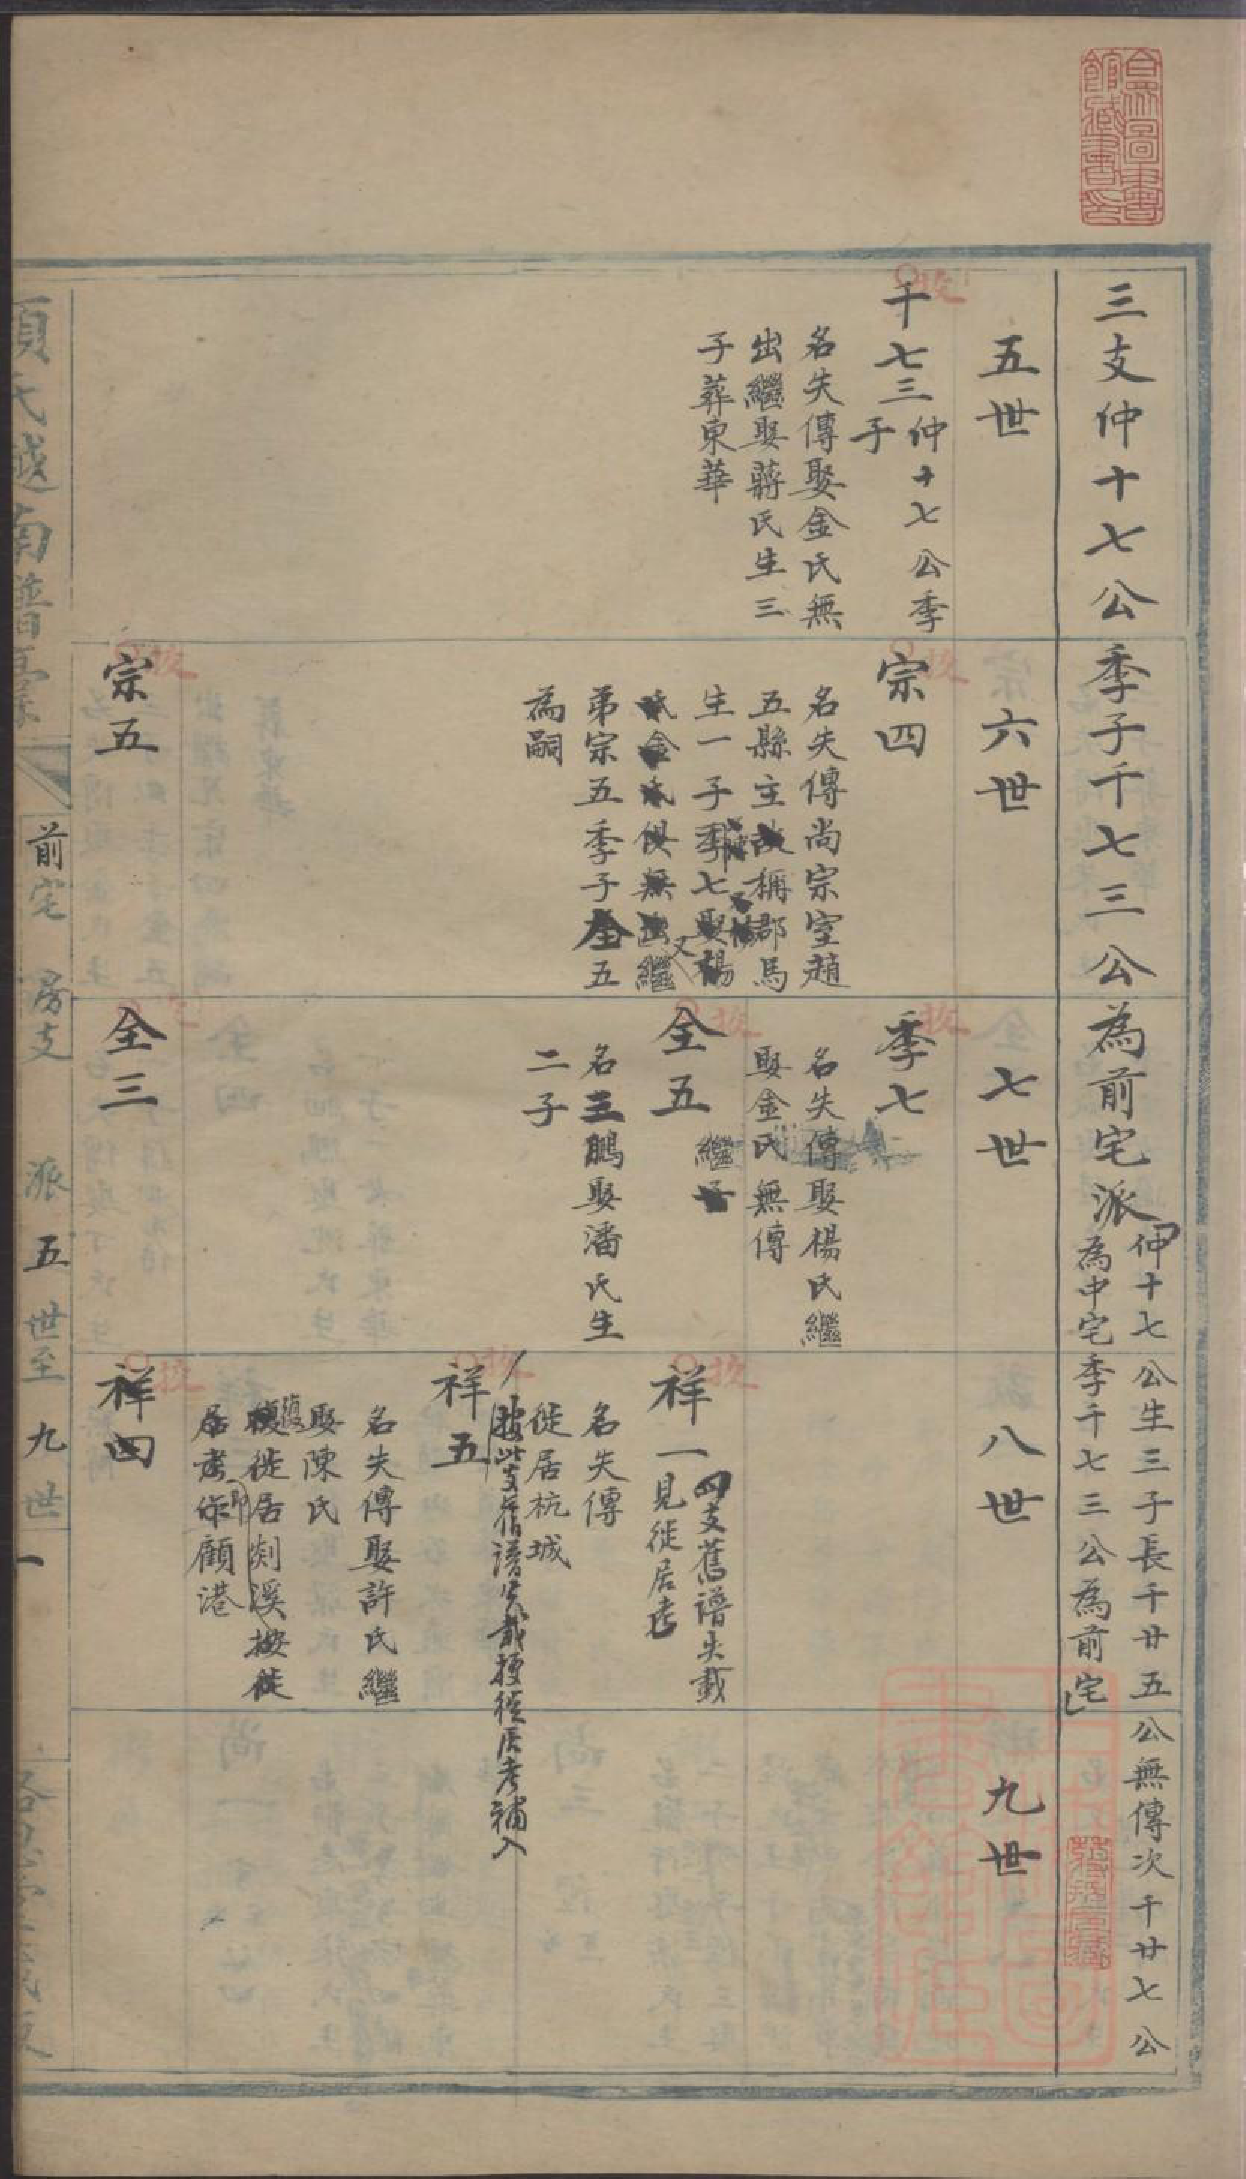 合眾圖書
館藏書印
三支仲十七公季子千七三公為前宅派
仲十七公生三子長千廿五公無傳次千廿七公
為中宅季千七三公為前宅
五世
六世
七世
八世
九世
千七三
仲十七公季
子
名失傳娶金氏無
出繼娶蔣氏生三
子葬東華
宗四
名失傳尚宗室趙
五縣主故稱郡馬
生一子季七娶楊
氏金氏俱無出繼
弟宗五季子全五
為嗣
宗五
季七
名失傳娶楊氏繼
娶金氏無傳
全五
繼子
名三鵬娶潘氏生
二子
全三
祥一
四支舊譜失載
見徙居考
名失傳
徙居杭城
按此支舊譜失載據徙居考補入
祥五
名失傳娶許氏繼
娶陳氏
復徙居剡溪按徙
居考作顧港
祥四
項氏越南譜
前宅 房支 派 五世至九世 一